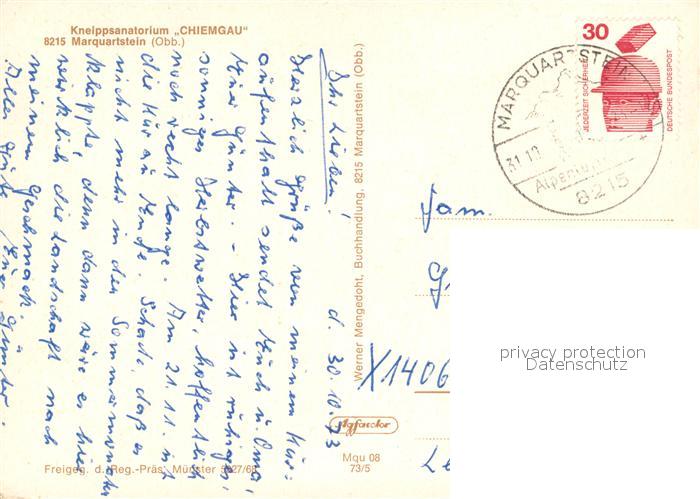 Kneippsanatorium „CHIEMGAU"
8215 Marquartstein (Obb.)
d. 30.10.73
Ihr Lieben!
Herzlich Grüße von meinem Kur=
aufenthalt sendet Euch u. Oma
Euer Günter. - Hier ist ruhiges,
sonniges Herbstwetter, hoffentlich
noch recht lange. Am 21.11. ist
die Kur zu Ende. Schade, daß es
nicht mehr in den Sommermonaten
klappte, denn dann wäre es hier
wirklich die Landschaft nach
meinem Geschmack.
Alles Gute Euer Günter.
Werner Mengedoht, Buchhandlung, 8215 Marquartstein (Obb.)
Freigeg. d. Reg.-Präs. Münster 5427/68
Agfacolor
Mqu 08
73/5
30
JEDERZEIT SICHERHEIT
DEUTSCHE BUNDESPOST
MARQUARTSTEIN
31.10
8215
Fam.
G
X1406
Le
privacy protection
Datenschutz